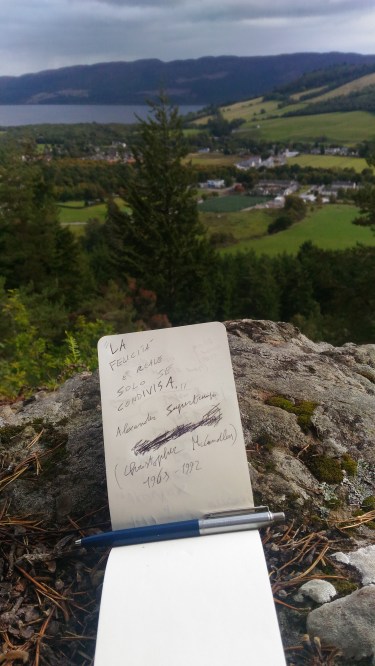 LA
FELICITA'
È REALE
SOLO SE
CONDIVISA,,
Alexander Supertramp
(Christopher McCandless)
1963-1992